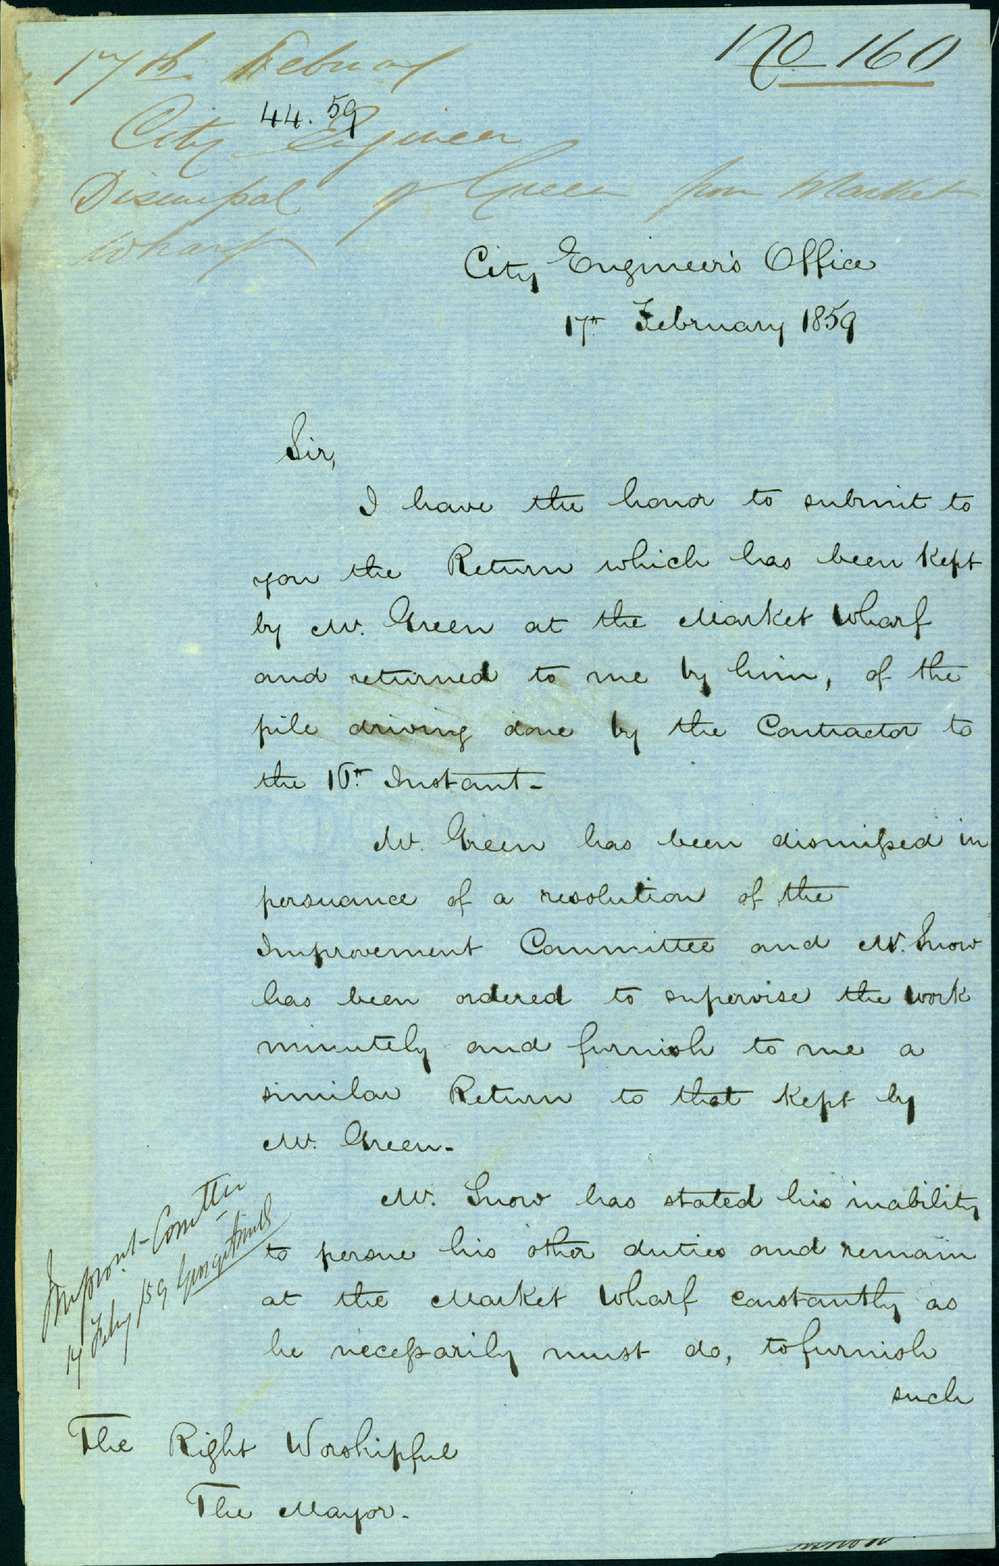 No 160
17th Februay
44. 59
City Engineer
Dismissal of Green from Market
Wharf
City Engineer's Office
17th February 1859
Sir,
I have the honor to submit to
you the Return which has been kept
by Mr. Green at the Market Wharf
and returned to me by him, of the
pile driving done by the Contractor to
the 16th Instant -
Mr. Green has been dismissed in
persuance of a resolution of the
Improvement Committee and Mr. Snow
has been ordered to supervise the work
minutely and furnish to me a
similar Return to that kept by
Mr. Green -
Mr. Snow has stated his inability
to persue his other duties and remain
at the Market Wharf constantly as
he necessarily must do, to furnish
such
Improvt - Comttee
17 Feby /59
The Right Worshipful
The Mayor -